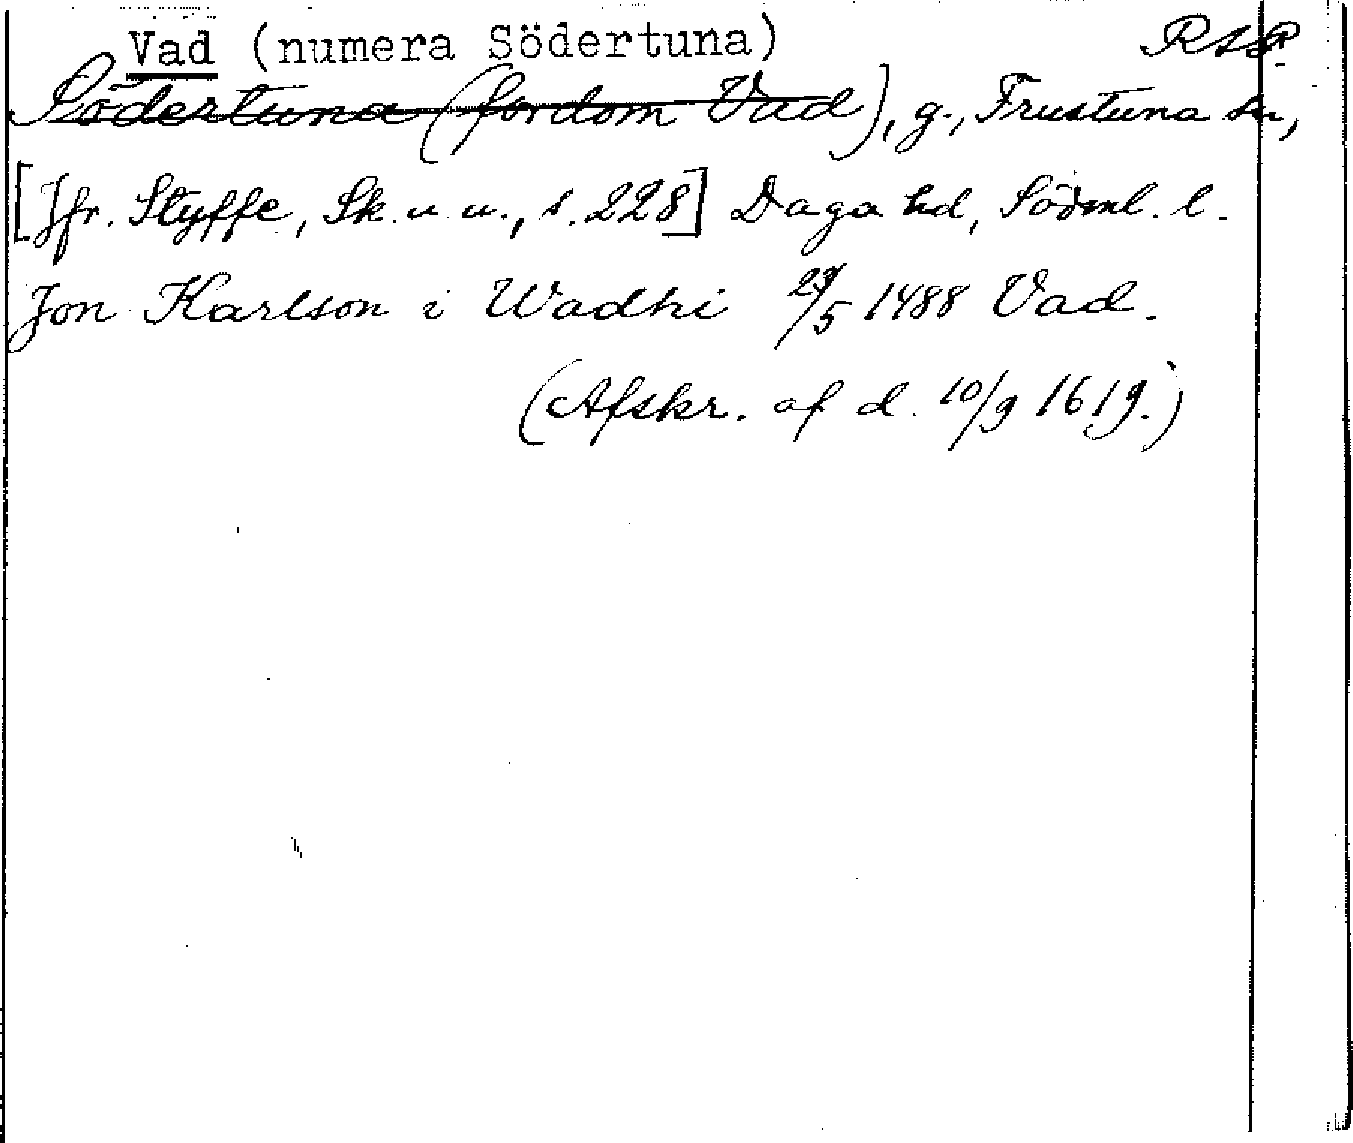 Vad (numera Södertuna) RAP.
Södertuna (fordom Vad), g., Frustuna sn,
[Jfr. Styffe, Sk. u. u., s. 228] Daga hd, Södml. l.
Jon Karlson i Wadhi /5 1488 Vad.
(Afskr. af d. 10/9 1619.)